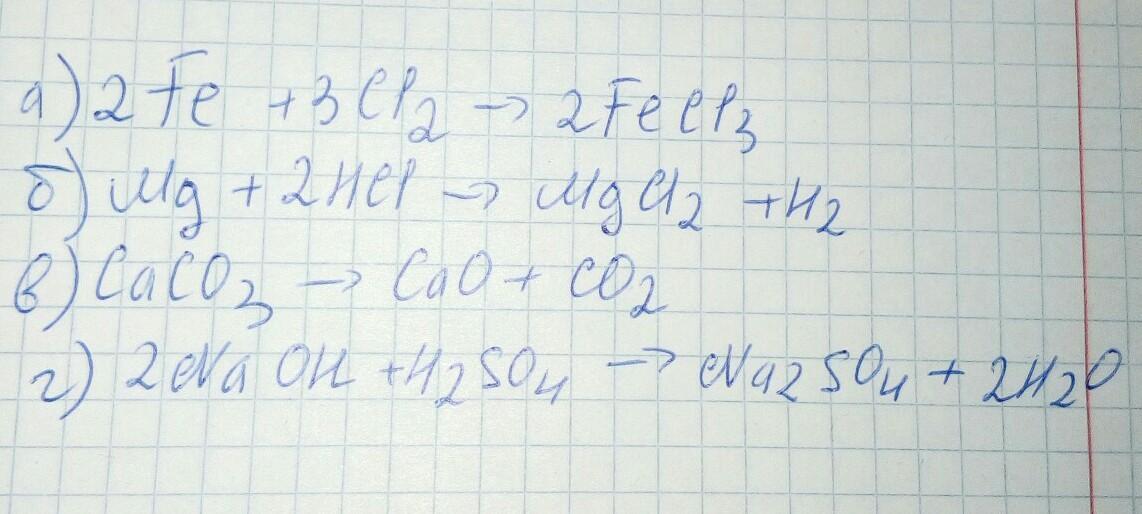 а) 2Fe + 3Cl₂ → 2FeCl₃
б) Mg + 2HCl → MgCl₂ + H₂
в) CaCO₃ → CaO + CO₂
г) 2NaOH + H₂SO₄ → Na₂SO₄ + 2H₂O